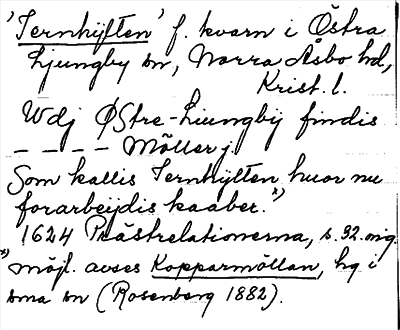 'Jernhÿlten' f. kvarn i Östra
Ljungby sn, Norra Åsbo hd,
Krist. l.
Wdj ØStre-Liungbÿ findis
– – – – Möller j.
Som kallis Jernhÿlten huor nu
forarbeÿdis kaaber.*)
1624 Prästrelationerna, s. 92. orig.
*) möjl. avses Kopparmöllan, hg i
sma sn (Rosenberg 1882).